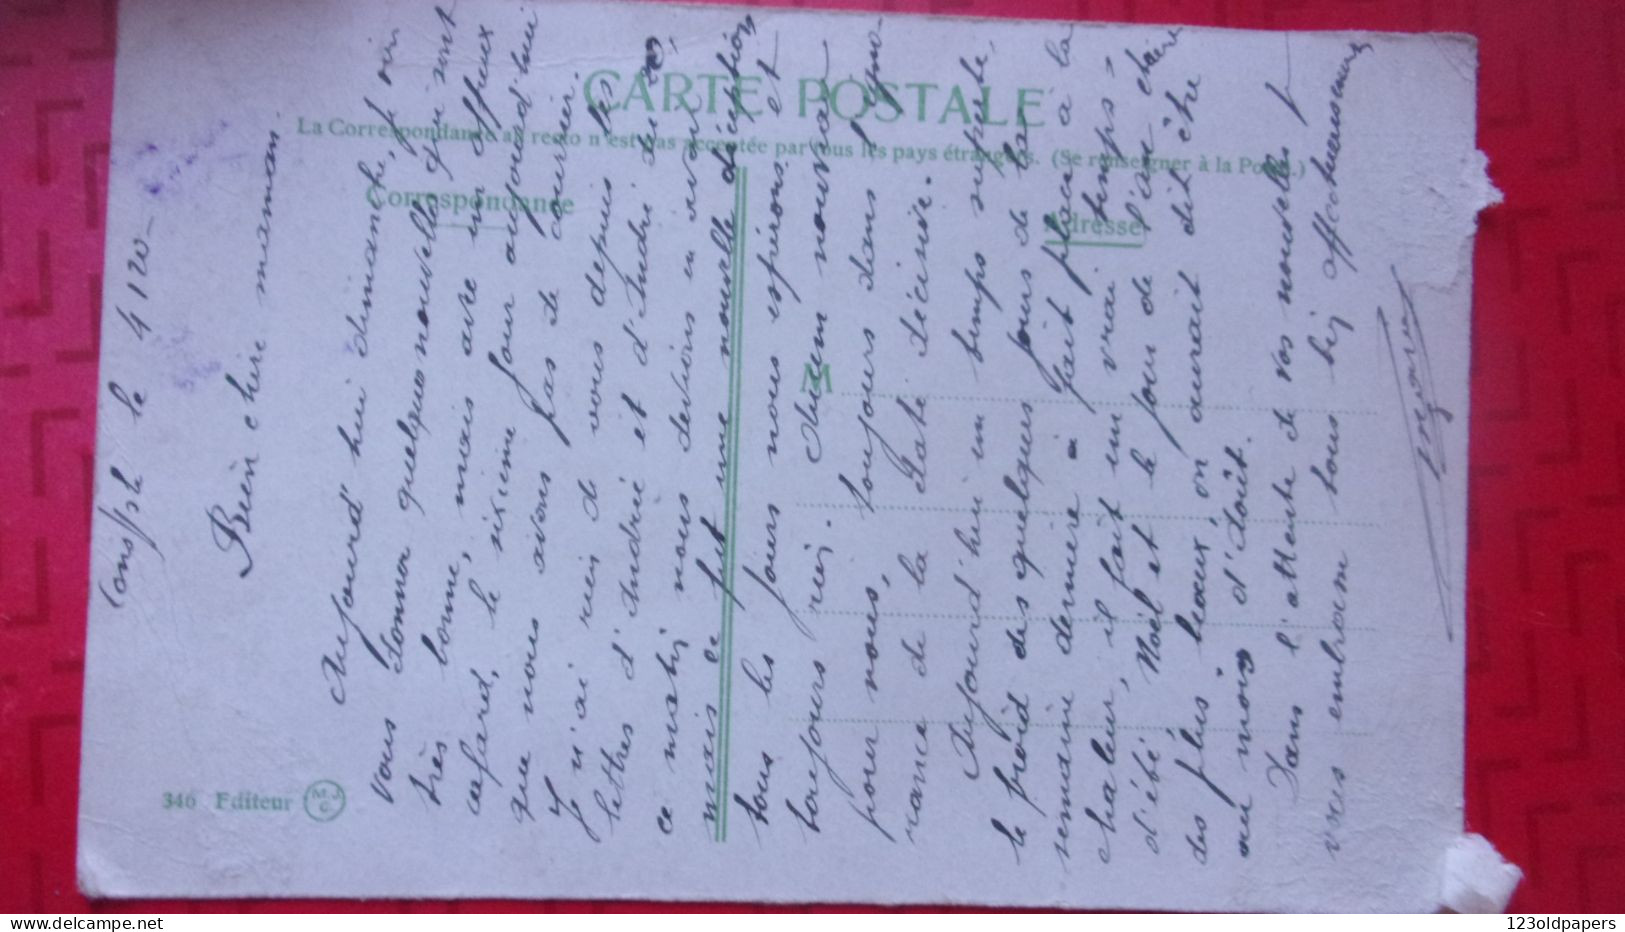 CARTE POSTALE
La Correspondance au recto n'est pas acceptée par tous les pays étrangers. (Se renseigner à la Poste.)
Correspondance
Adresse
M
346 Editeur M.J.C.
le 4 1 20
Bien chère maman.
Aujourd'hui dimanche, j
vous donner quelques nouvelles qui sont
très bonne, mais avec un affreux
cafard, le sixième jour aujourd'hui
que nous avons pas de courrier.
Je n'ai rien de vous depuis les
lettres d'Andrée et d'André du 20,
ce matin nous devions en avoir
mais ce fut une nouvelle déception
tous les jours nous espérons et
toujours rien. Aucun nouveau
pour nous, toujours dans l'igno
rance de la date décisive.
Aujourd'hui un temps superbe,
le froid des quelques jours de la
semaine dernière a fait place à la
chaleur, il fait un vrai temps
d'été, Noël et le jour de l'an été
des plus beaux, on aurait dit être
au mois d'août.
Dans l'attente de vos nouvelles je
vous embrasse tous bien affectueusement
123oldpapers